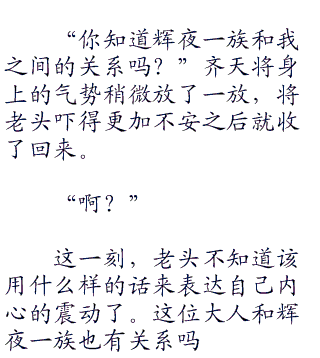 “你知道辉夜一族和我
之间的关系吗？”齐天将身
上的气势稍微放了一放，将
老头吓得更加不安之后就收
了回来。
“啊？”
这一刻，老头不知道该
用什么样的话来表达自己内
心的震动了。这位大人和辉
夜一族也有关系吗